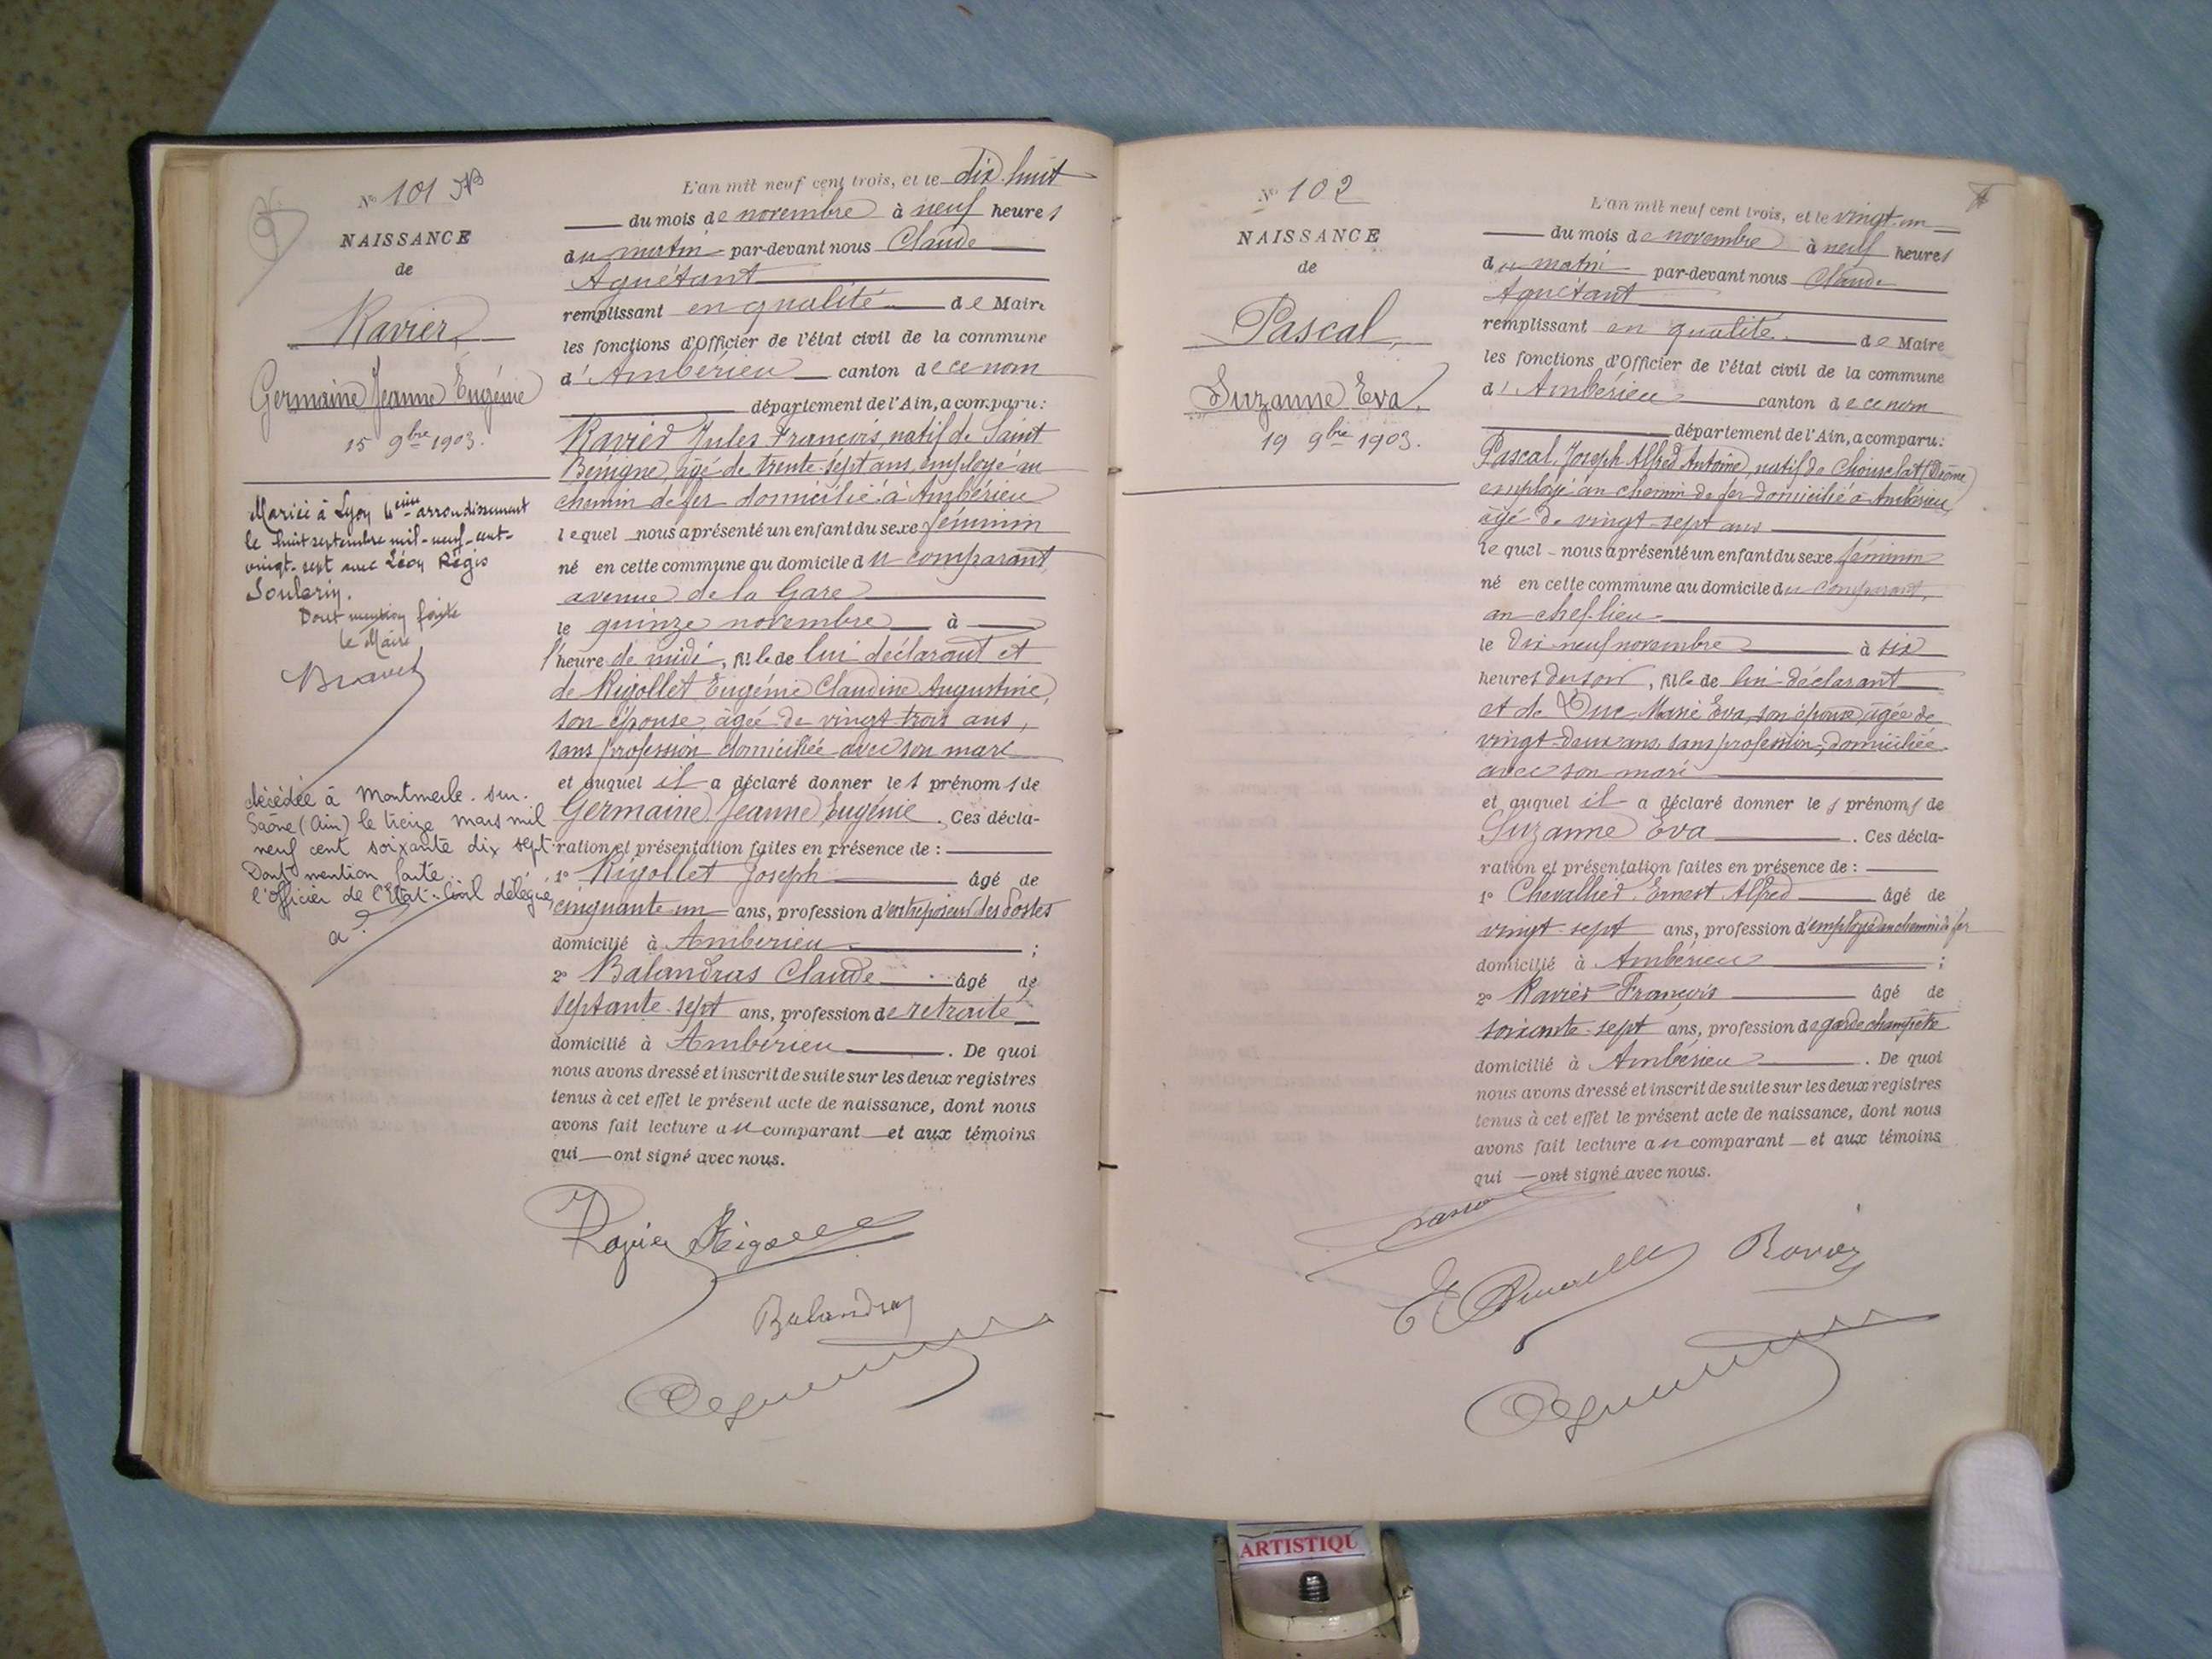 N° 101
NAISSANCE
de
Ravier
Germaine Jeanne Eugénie
15 9bre 1903.
Mariée à Lyon arrondissement
le huit septembre mil-neuf-cent-
vingt-sept avec Léon Régis
Soulerin.
Dont mention faite
le Maire
décédée à Montmerle-sur-
Saône (Ain) le treize mars mil
neuf cent soixante dix sept.
Dont mention faite.
l'Officier de l'Etat-Civil délégué,
L'an mil neuf cent trois, et le dix-huit
du mois de novembre à neuf heures
du matin par-devant nous Claude
Aguétant
remplissant en qualité de Maire
les fonctions d'Officier de l'état civil de la commune
d'Ambérieu canton de ce nom
département de l'Ain, a comparu :
Ravier Jules François, natif de Saint
Bénigne, âgé de trente-sept ans, employé au
chemin de fer domicilié à Ambérieu
lequel nous a présenté un enfant du sexe féminin
né en cette commune au domicile du comparant,
avenue de la Gare
le quinze novembre à
l'heure de midi, fille de lui déclarant et
de Rigollet Eugénie Claudine Augustine,
son épouse, âgée de vingt trois ans,
sans profession domiciliée avec son mari
et auquel il a déclaré donner les prénoms de
Germaine Jeanne Eugénie. Ces décla-
ration et présentation faites en présence de :
1° Rigollet Joseph âgé de
cinquante-un ans, profession d'entreposeur des Postes
domicilié à Ambérieu ;
2° Balandras Claude âgé de
septante-sept ans, profession de retraité
domicilié à Ambérieu. De quoi
nous avons dressé et inscrit de suite sur les deux registres
tenus à cet effet le présent acte de naissance, dont nous
avons fait lecture au comparant et aux témoins
qui ont signé avec nous.
Ravier
Balandras
N° 102
NAISSANCE
de
Pascal,
Suzanne Eva.
19 9bre 1903.
L'an mil neuf cent trois, et le vingt-un
du mois de novembre à neuf heures
du matin par-devant nous Claude
Aguétant
remplissant en qualité de Maire
les fonctions d'Officier de l'état civil de la commune
d'Ambérieu canton de ce nom
département de l'Ain, a comparu :
Pascal, Joseph Alfred Antoine, natif de (Drôme)
employé au chemin de fer domicilié à Ambérieu,
âgé de vingt-sept ans
lequel nous a présenté un enfant du sexe féminin
né en cette commune au domicile du comparant,
au chef-lieu
le dix-neuf novembre à six
heures du soir, fille de lui déclarant
et de Duc Marie Eva, son épouse, âgée de
vingt-deux ans, sans profession, domiciliée
avec son mari
et auquel il a déclaré donner les prénoms de
Suzanne Eva. Ces décla-
ration et présentation faites en présence de :
1° Chevallier Ernest Alfred âgé de
vingt-sept ans, profession d'employé au chemin de fer
domicilié à Ambérieu ;
2° Ravier François âgé de
soixante-sept ans, profession de garde champêtre
domicilié à Ambérieu. De quoi
nous avons dressé et inscrit de suite sur les deux registres
tenus à cet effet le présent acte de naissance, dont nous
avons fait lecture au comparant et aux témoins
qui ont signé avec nous.
ARTISTIQU